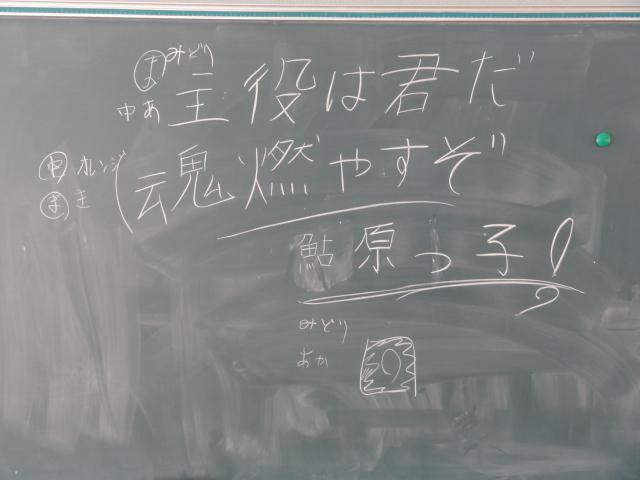 ま みどり
中 あ 主役は君だ
中 オレンジ
ま 主
魂燃やすぞ
鮎原っ子!
みどり
あか